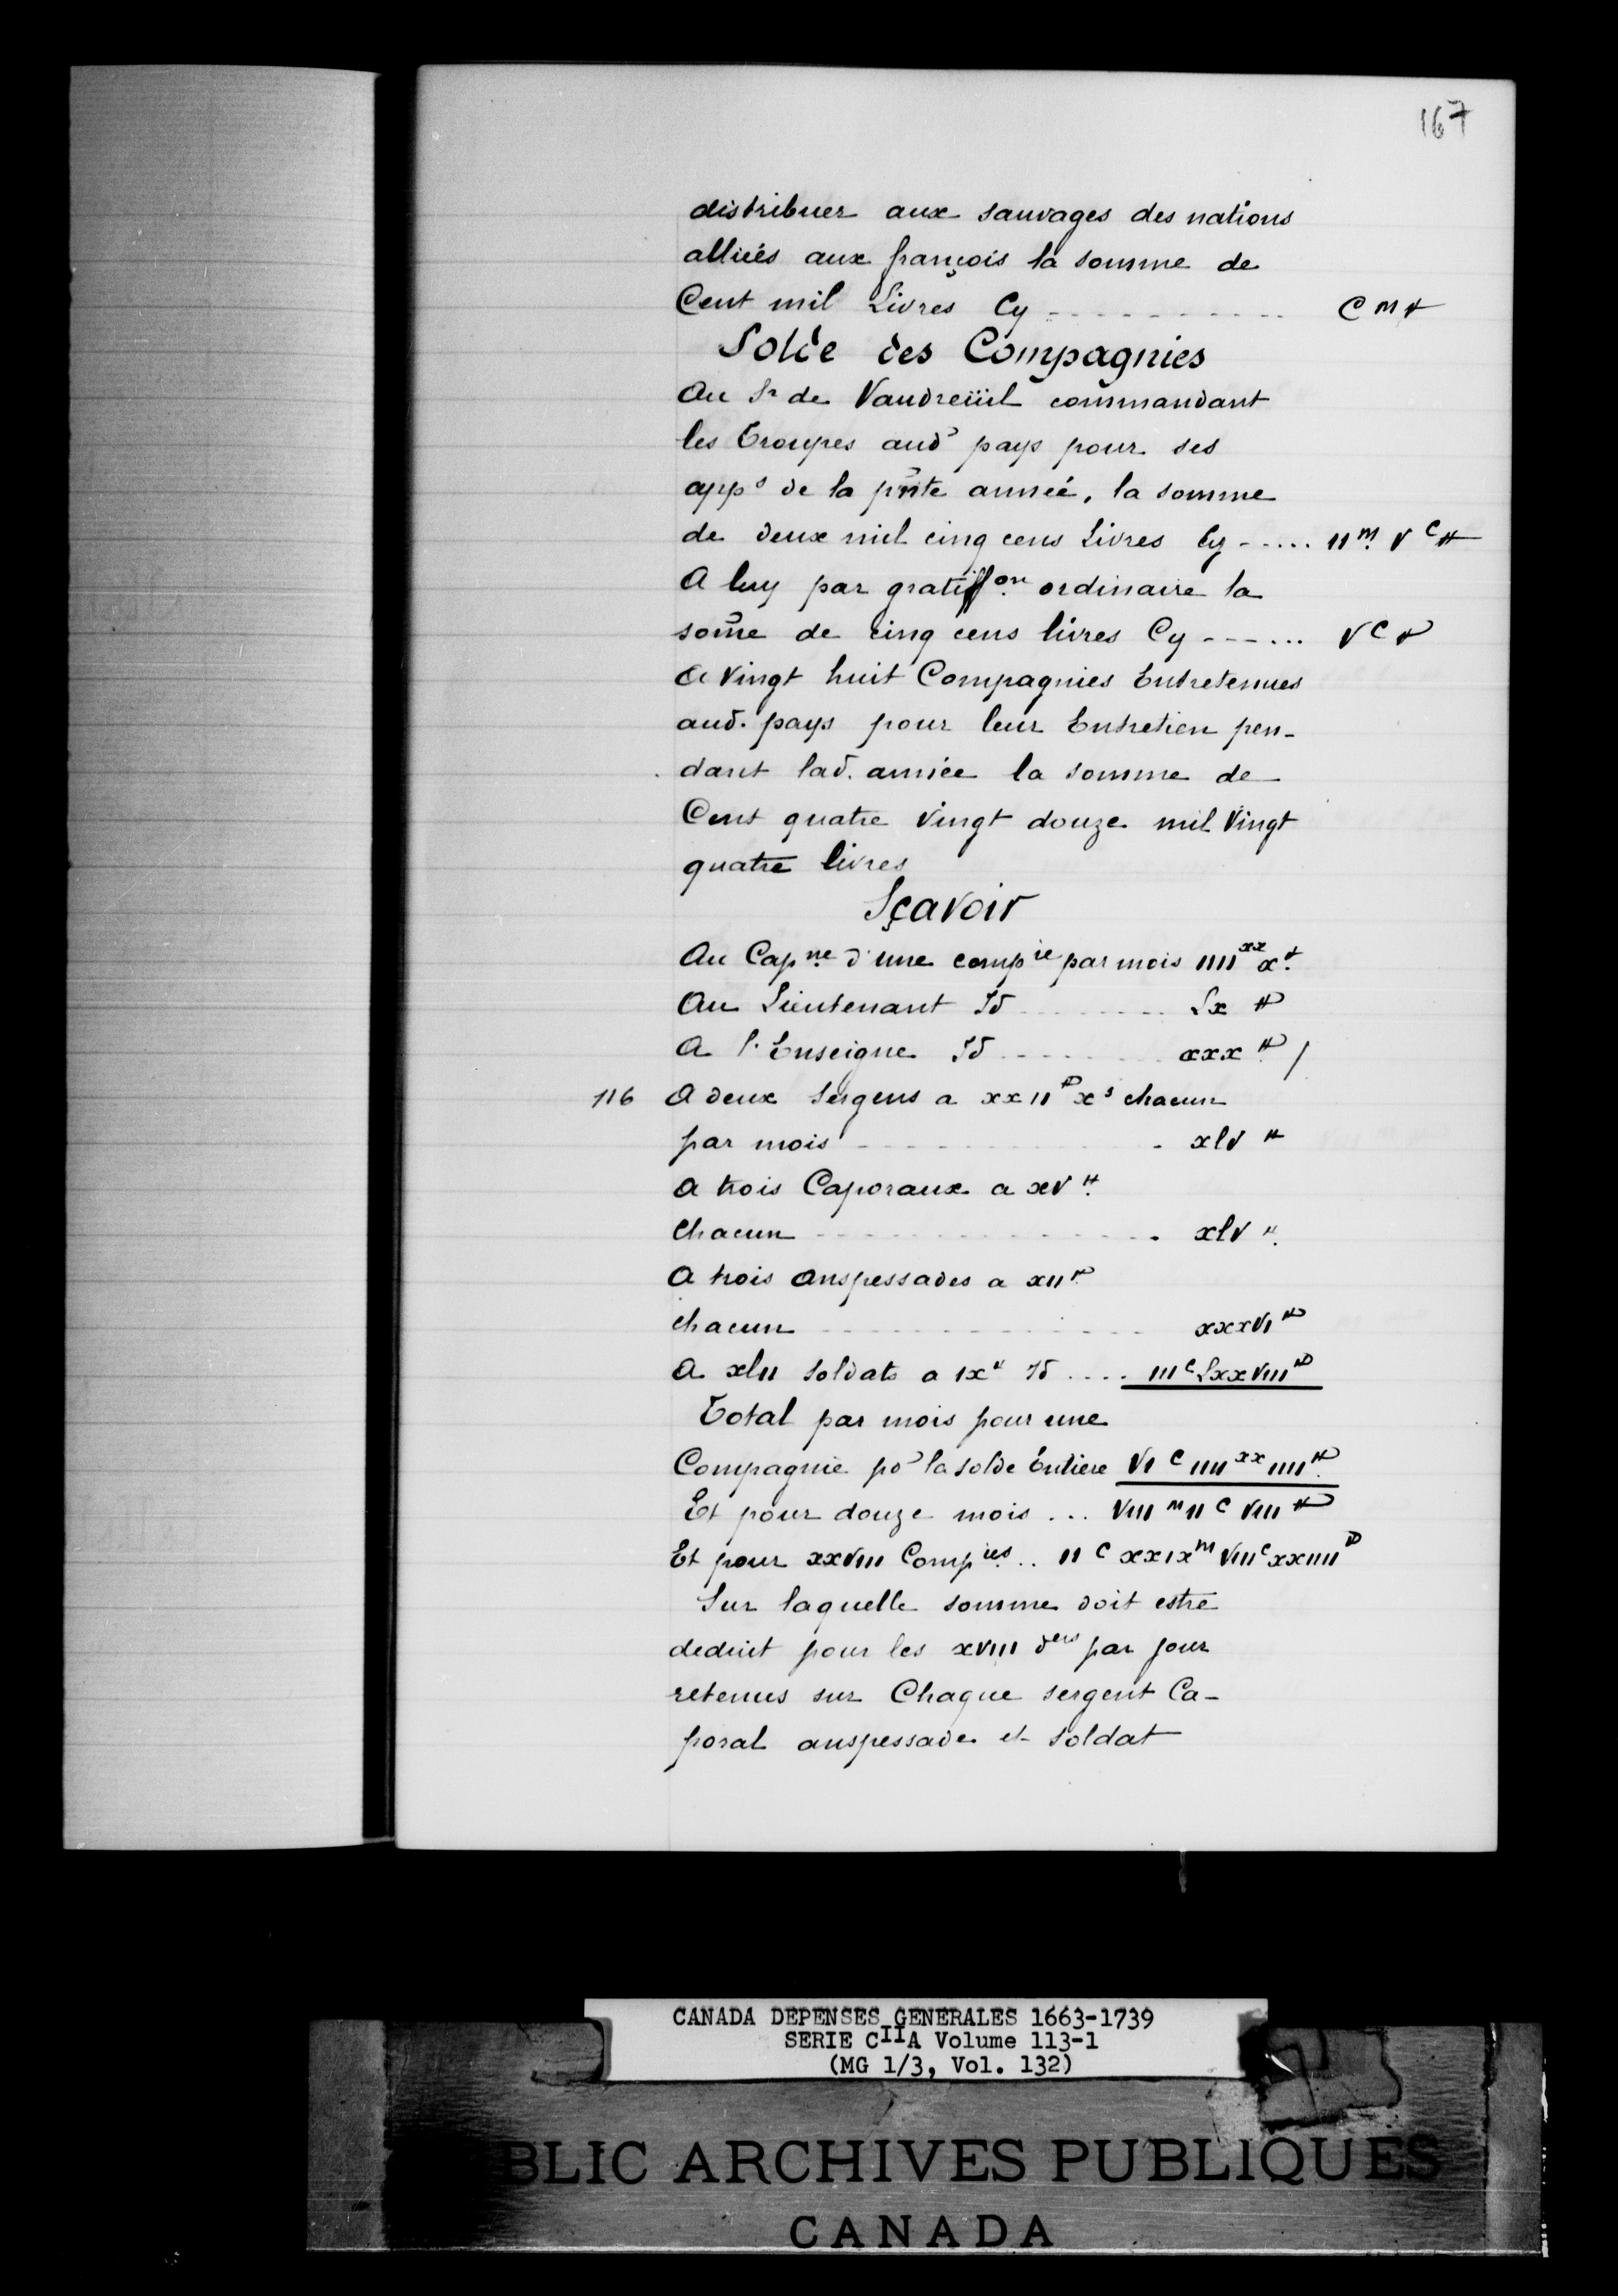 167
distribuer aux sauvages des nations
alliés aux françois la somme de
Cent mil Livres Cy - - - - - - - - - - C M ₶
Solde des Compagnies
Au Sr de Vaudreüil commandant
les Troupes aud pays pour ses
apps de la pñte année, la somme
de deux mil cinq cens Livres Cy - - ... II m. V C ₶
A luy par gratiff.on ordinaire la
som̃e de cinq cens livres Cy - - - ... V C ₶
A Vingt huit Compagnies Entretenues
aud. pays pour leur Entretien pen-
dant lad. année la somme de
Cent quatre Vingt douze mil Vingt
quatre livres
Sçavoir
Au Cap.ne d'une comp ie par mois IIII xx x ₶
Au Lieutenant Id - - - - - - - Lx ₶
A l'Enseigne Id - - - - - - - xxx ₶ /
116 A deux Sergens a xxII ₶ x s chacun
par mois - - - - - - - - - - - xlV ₶
A trois Caporaux a xV ₶
Chacun - - - - - - - - - - - - xlV ₶
A trois anspessades a xII ₶
chacun - - - - - - - - - - - - xxxVI ₶
A xlII Soldats a Ix ₶ Id .... III C LxxVIII ₶
Total par mois pour une
Compagnie po la solde Entiere VI C IIII xx IIII ₶
Et pour douze mois ... VIII m II C VIII ₶
Et pour xxVIII Comp ies .. II C xxIx m VIII C xxIIII ₶
Sur laquelle somme doit estre
deduit pour les xVIII ders par jour
retenus sur Chaque sergent Ca-
poral anspessade et soldat
CANADA DEPENSES GENERALES 1663-1739
SERIE CIIA Volume 113-1
(MG 1/3, Vol. 132)
BLIC ARCHIVES PUBLIQUES
CANADA